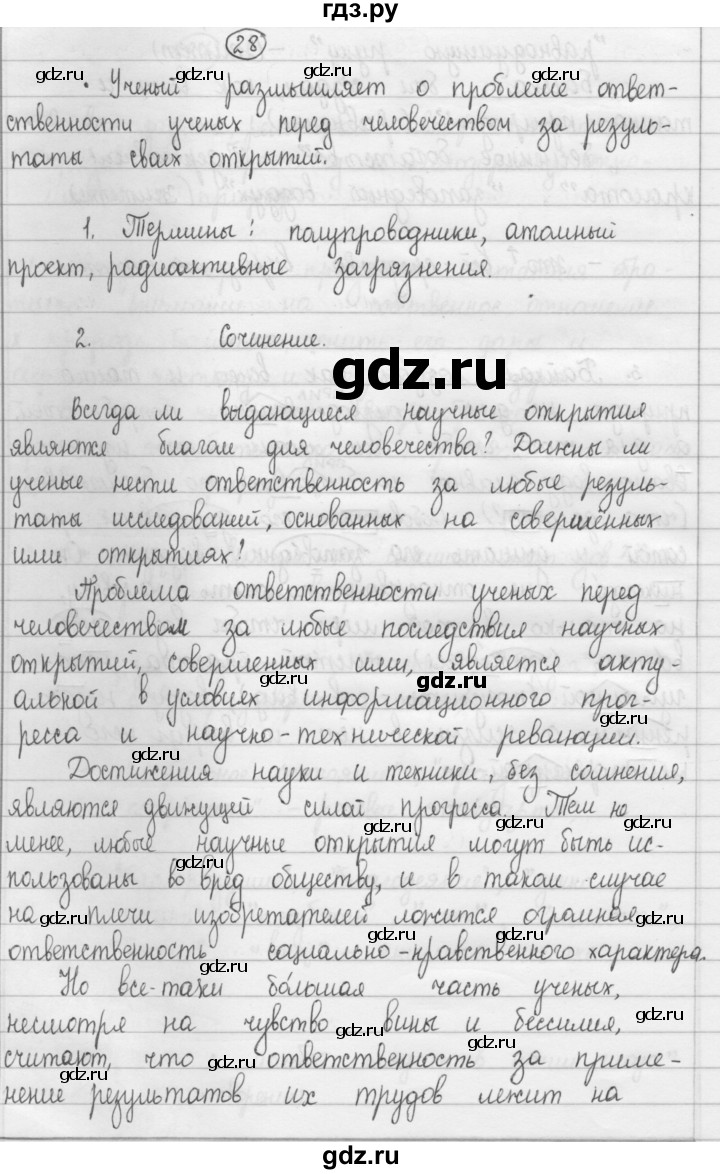 гдз.ру
28
• Ученый размышляет о проблеме ответ-
ственности ученых перед человечеством за резуль-
таты своих открытий.
1. Термины: полупроводники, атомный
проект, радиоактивные загрязнения.
2. Сочинение.
gdz.ru
Всегда ли выдающиеся научные открытия
являются благом для человечества? Должны ли
ученые нести ответственность за любые резуль-
таты исследований, основанных на совершённых
ими открытиях?
Проблема ответственности ученых перед
человечеством за любые последствия научных
открытий, совершенных ими, является акту-
альной в условиях информационного прог-
ресса и научно-технической революции.
Достижения науки и техники, без сомнения,
являются движущей силой прогресса. Тем не
менее, любые научные открытия могут быть ис-
пользованы во вред обществу, и в таком случае
на плечи изобретателей ложится огромная
ответственность социально-нравственного характера.
Но все-таки бо́льшая часть ученых,
несмотря на чувство вины и бессилия,
считают, что ответственность за приме-
нение результатов их трудов лежит на
gdz.ru